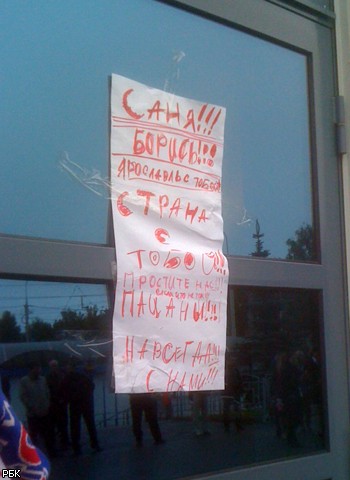 САНЯ!!!
БОРИСЬ!!!
ЯРОСЛАВЛЬ С ТОБОЙ
СТРАНА
С
ТОБОЙ!!!
ПРОСТИТЕ НАС!!!
ПАЦАНЫ!!!
НАВСЕГДА!!!
С НАМИ!!!
РБК